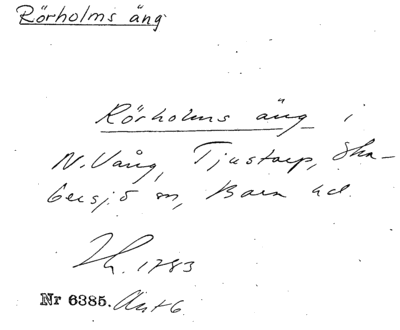 Rörholms äng
Rörholms äng i
N. Vång, Tjustorp, Ska-
bersjö sn, Bara hd.
1783
Nr 6385.